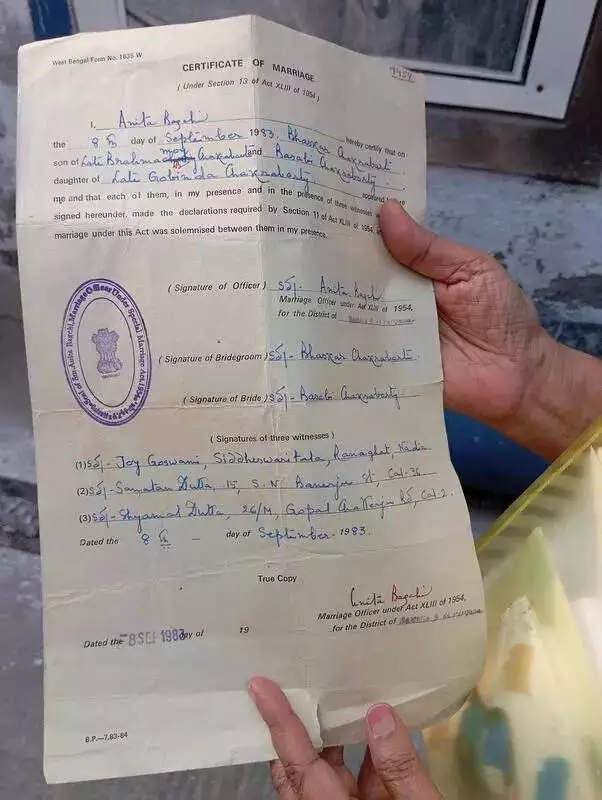 West Bengal Form No. 1935 W
9438
CERTIFICATE OF MARRIAGE
( Under Section 13 of Act XLIII of 1954 )
I, Anita Bagchi hereby certify that on
the 8th day of September 1983, Bhaskar Chakrabarti
son of Late Brahmamoy Chakrabarti and Basabi Chakraborty
daughter of Late Gobinda Chakraborty appeared before
me and that each of them, in my presence and in the presence of three witnesses
signed hereunder, made the declarations required by Section 11 of Act XLIII of 1954,
marriage under this Act was solemnised between them in my presence.
( Signature of Officer ) Sd/- Anita Bagchi
Marriage Officer under Act XLIII of 1954,
for the District of
( Signature of Bridegroom ) Sd/- Bhaskar Chakrabarti.
( Signature of Bride ) Sd/- Basabi Chakraborty
( Signatures of three witnesses )
(1) Sd/- Joy Goswami, Siddheswaritala, Ranaghat, Nadia
(2) Sd/- Sanatan Dutta, 15, S. N. Banerjee St, Cal-36
(3) Sd/- Shyamal Dutta, 26/M, Gopal Chatterjee Rd, Cal-2.
Dated the 8th – day of September 1983.
True Copy
Anita Bagchi
Marriage Officer under Act XLIII of 1954,
for the District of
Dated the -8 SEP 1983 day of 19
B.P.—7.83-84